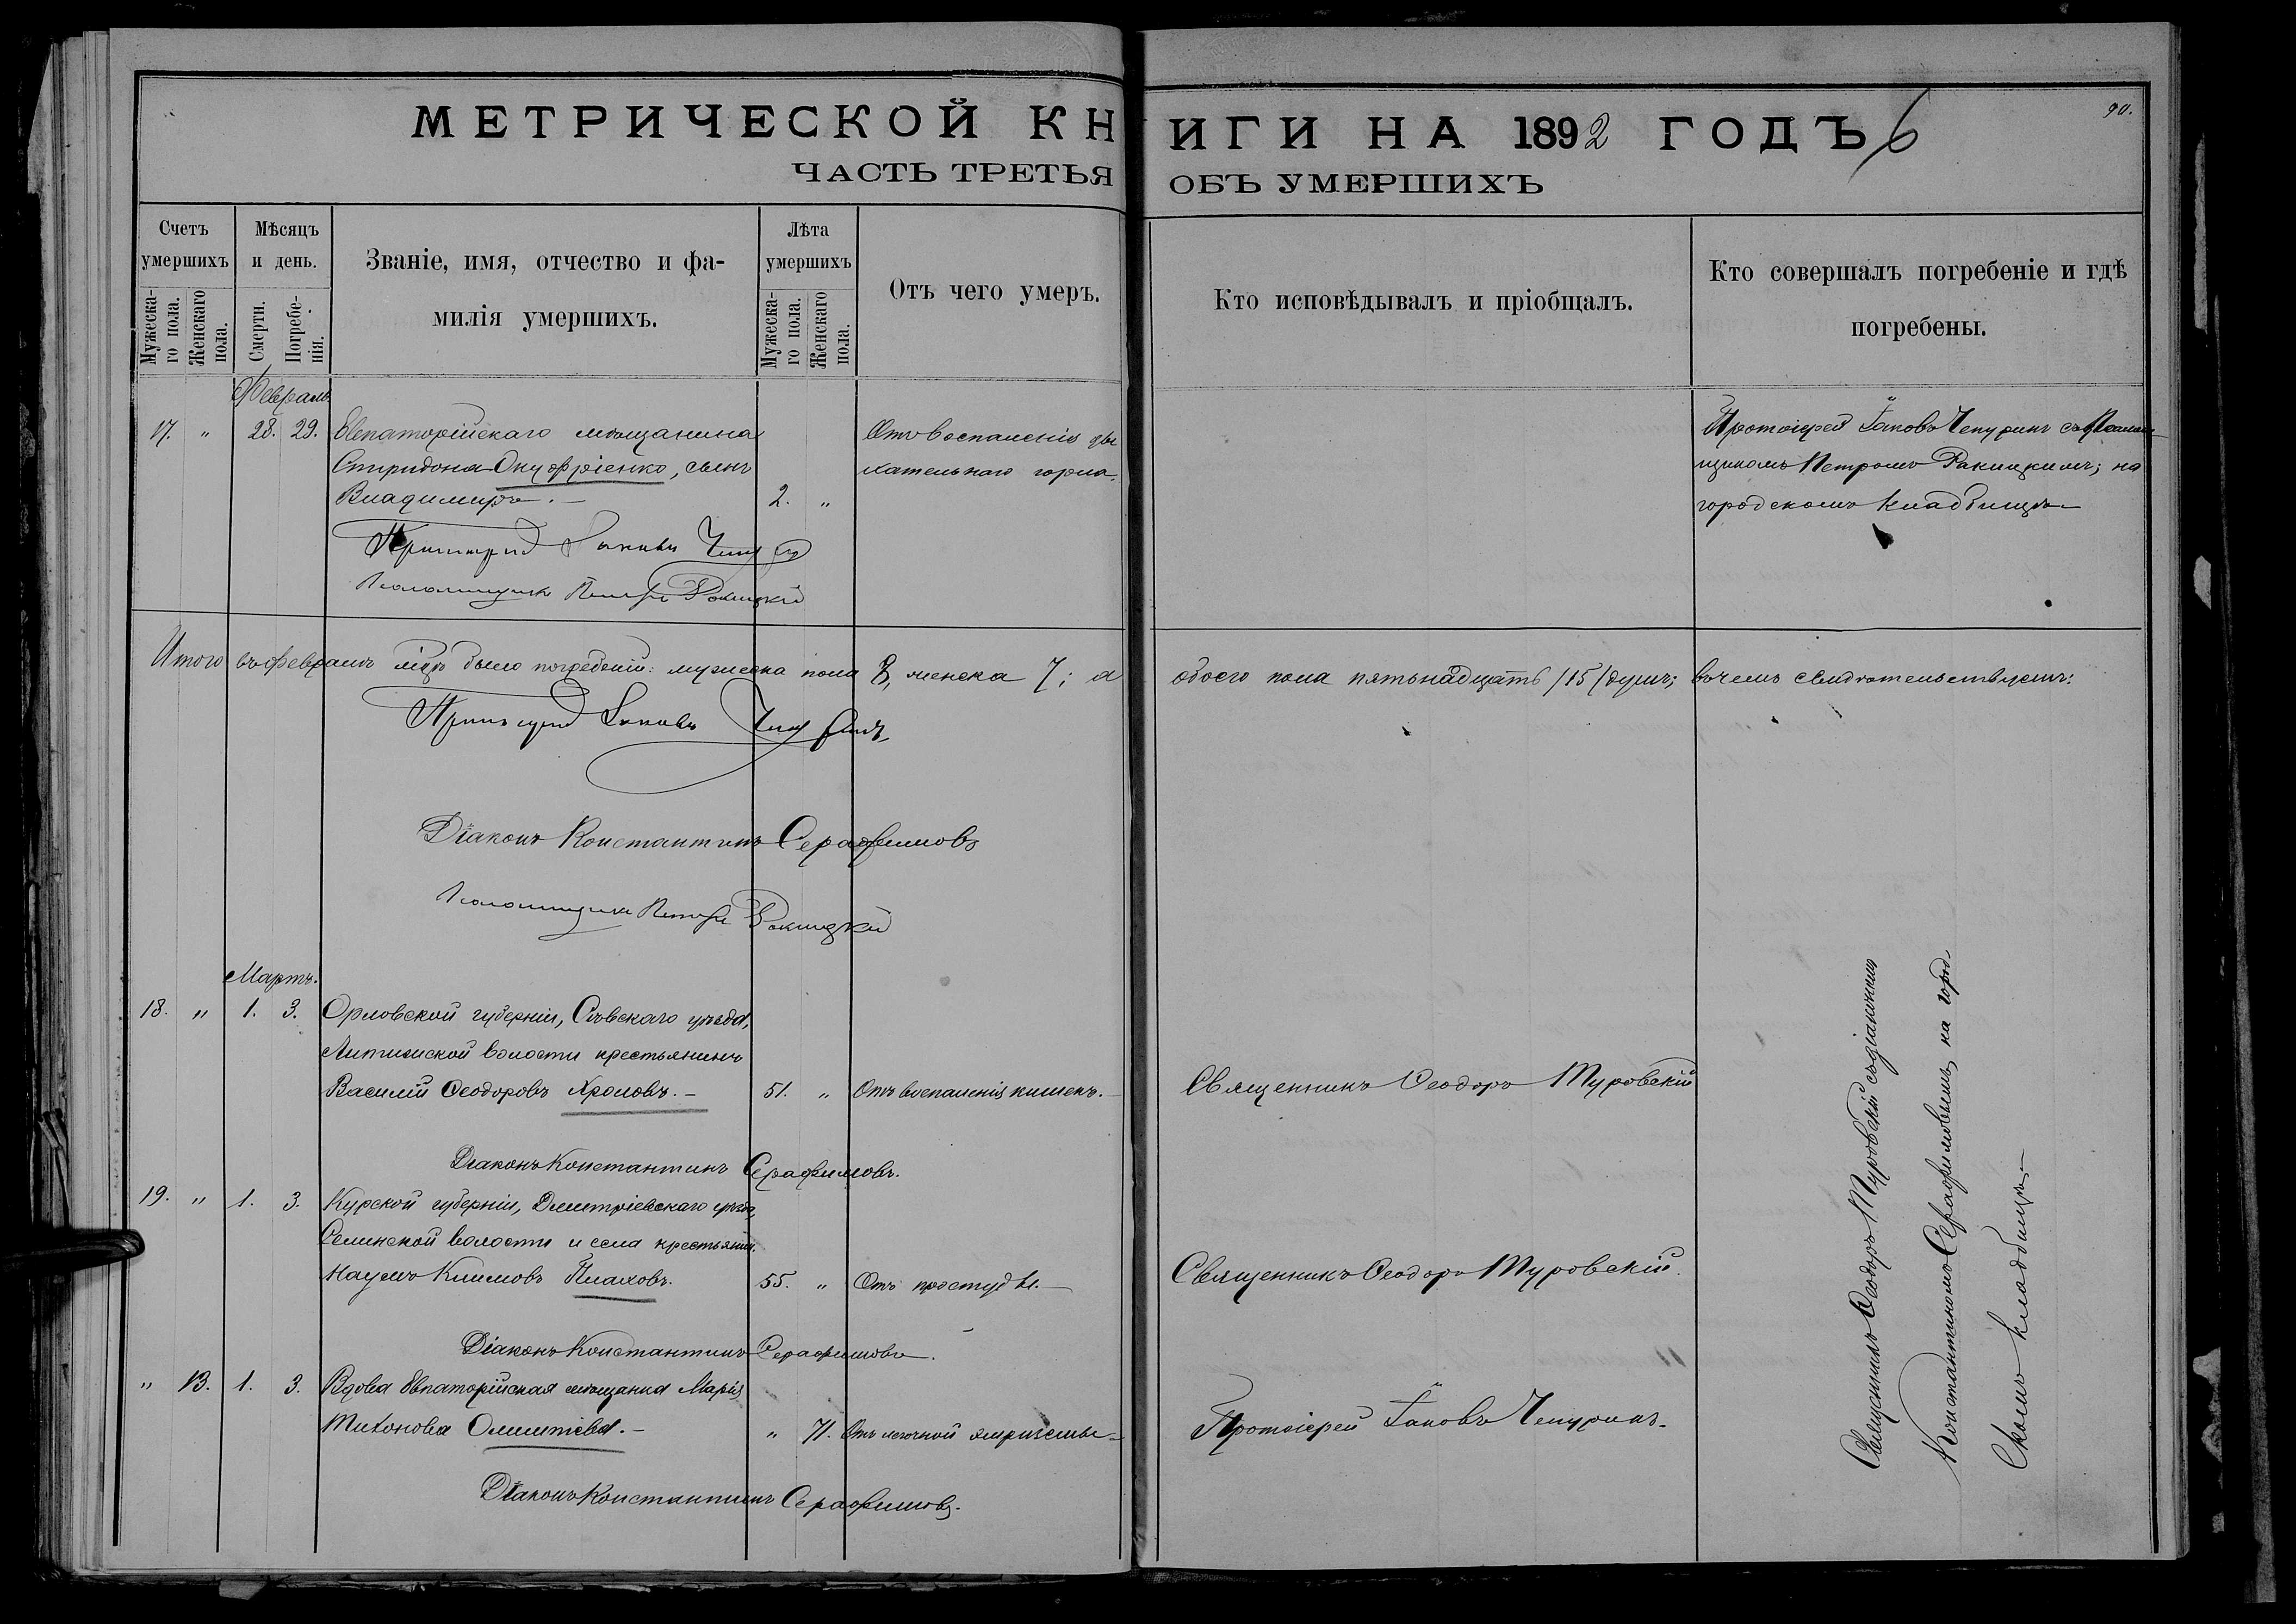 90.
МЕТРИЧЕСКОЙ КНИГИ НА 1892 ГОДЪ 6
ЧАСТЬ ТРЕТЬЯ ОБЪ УМЕРШИХЪ
Счетъ умершихъ
Мужеска-го пола.
Женскаго пола.
Мѣсяцъ и день.
Смерти.
Погребе-нія.
Званіе, имя, отчество и фа-
милія умершихъ.
Лѣта умершихъ
Мужеска-го пола.
Женскаго пола.
Отъ чего умеръ.
Кто исповѣдывалъ и пріобщалъ.
Кто совершалъ погребеніе и гдѣ
погребены.
Февраль.
17. " 28. 29. Евпаторійскаго мѣщанина
Спиридона Онуфріенко, сынъ
Владиміръ. 2. "
Отъ воспаленія ды
хательнаго горла.
Протоіерей Іаковъ Чепуринъ съ Псалом-
щикомъ Петромъ Ракицкимъ; на
городскомъ кладбищѣ
Протоіерей Іаковъ Чепуринъ
Псаломщикъ Петръ Ракицкій
Итого въ февралѣ м͠цѣ было погребеній: мужеска пола 8, женска 7; а обоего пола пятьнадцать /15/ душъ; въ чемъ свидѣтельствуемъ:
Протоіерей Іаковъ Чепуринъ
Діаконъ Константинъ Серафимовъ
Псаломщикъ Петръ Ракицкій
Мартъ.
18. " 1. 3. Орловской губерніи, Сѣвскаго уѣзда,
волости крестьянинъ
Василій Ѳеодоровъ Хромовъ. 51. " Отъ воспаленія кишекъ.
Священникъ Ѳеодоръ Муровскій
Діаконъ Константинъ Серафимовъ.
19. " 1. 3. Курской губерніи, Дмитріевскаго уѣзда,
волости и села крестьянинъ
Наумъ Климовъ Плаховъ. 55. " Отъ простуды.
Священникъ Ѳеодоръ Муровскій.
Діаконъ Константинъ Серафимовъ.
" 13. 1. 3. Вдова Евпаторійская мѣщанка Марія
Тихонова " 71. Отъ легочной эмфиземы
Протоіерей Іаковъ Чепуринъ.
Діаконъ Константинъ Серафимовъ.
Священникъ Ѳеодоръ Муровскій съ діакономъ
Константиномъ Серафимовымъ, на город
скомъ кладбищѣ